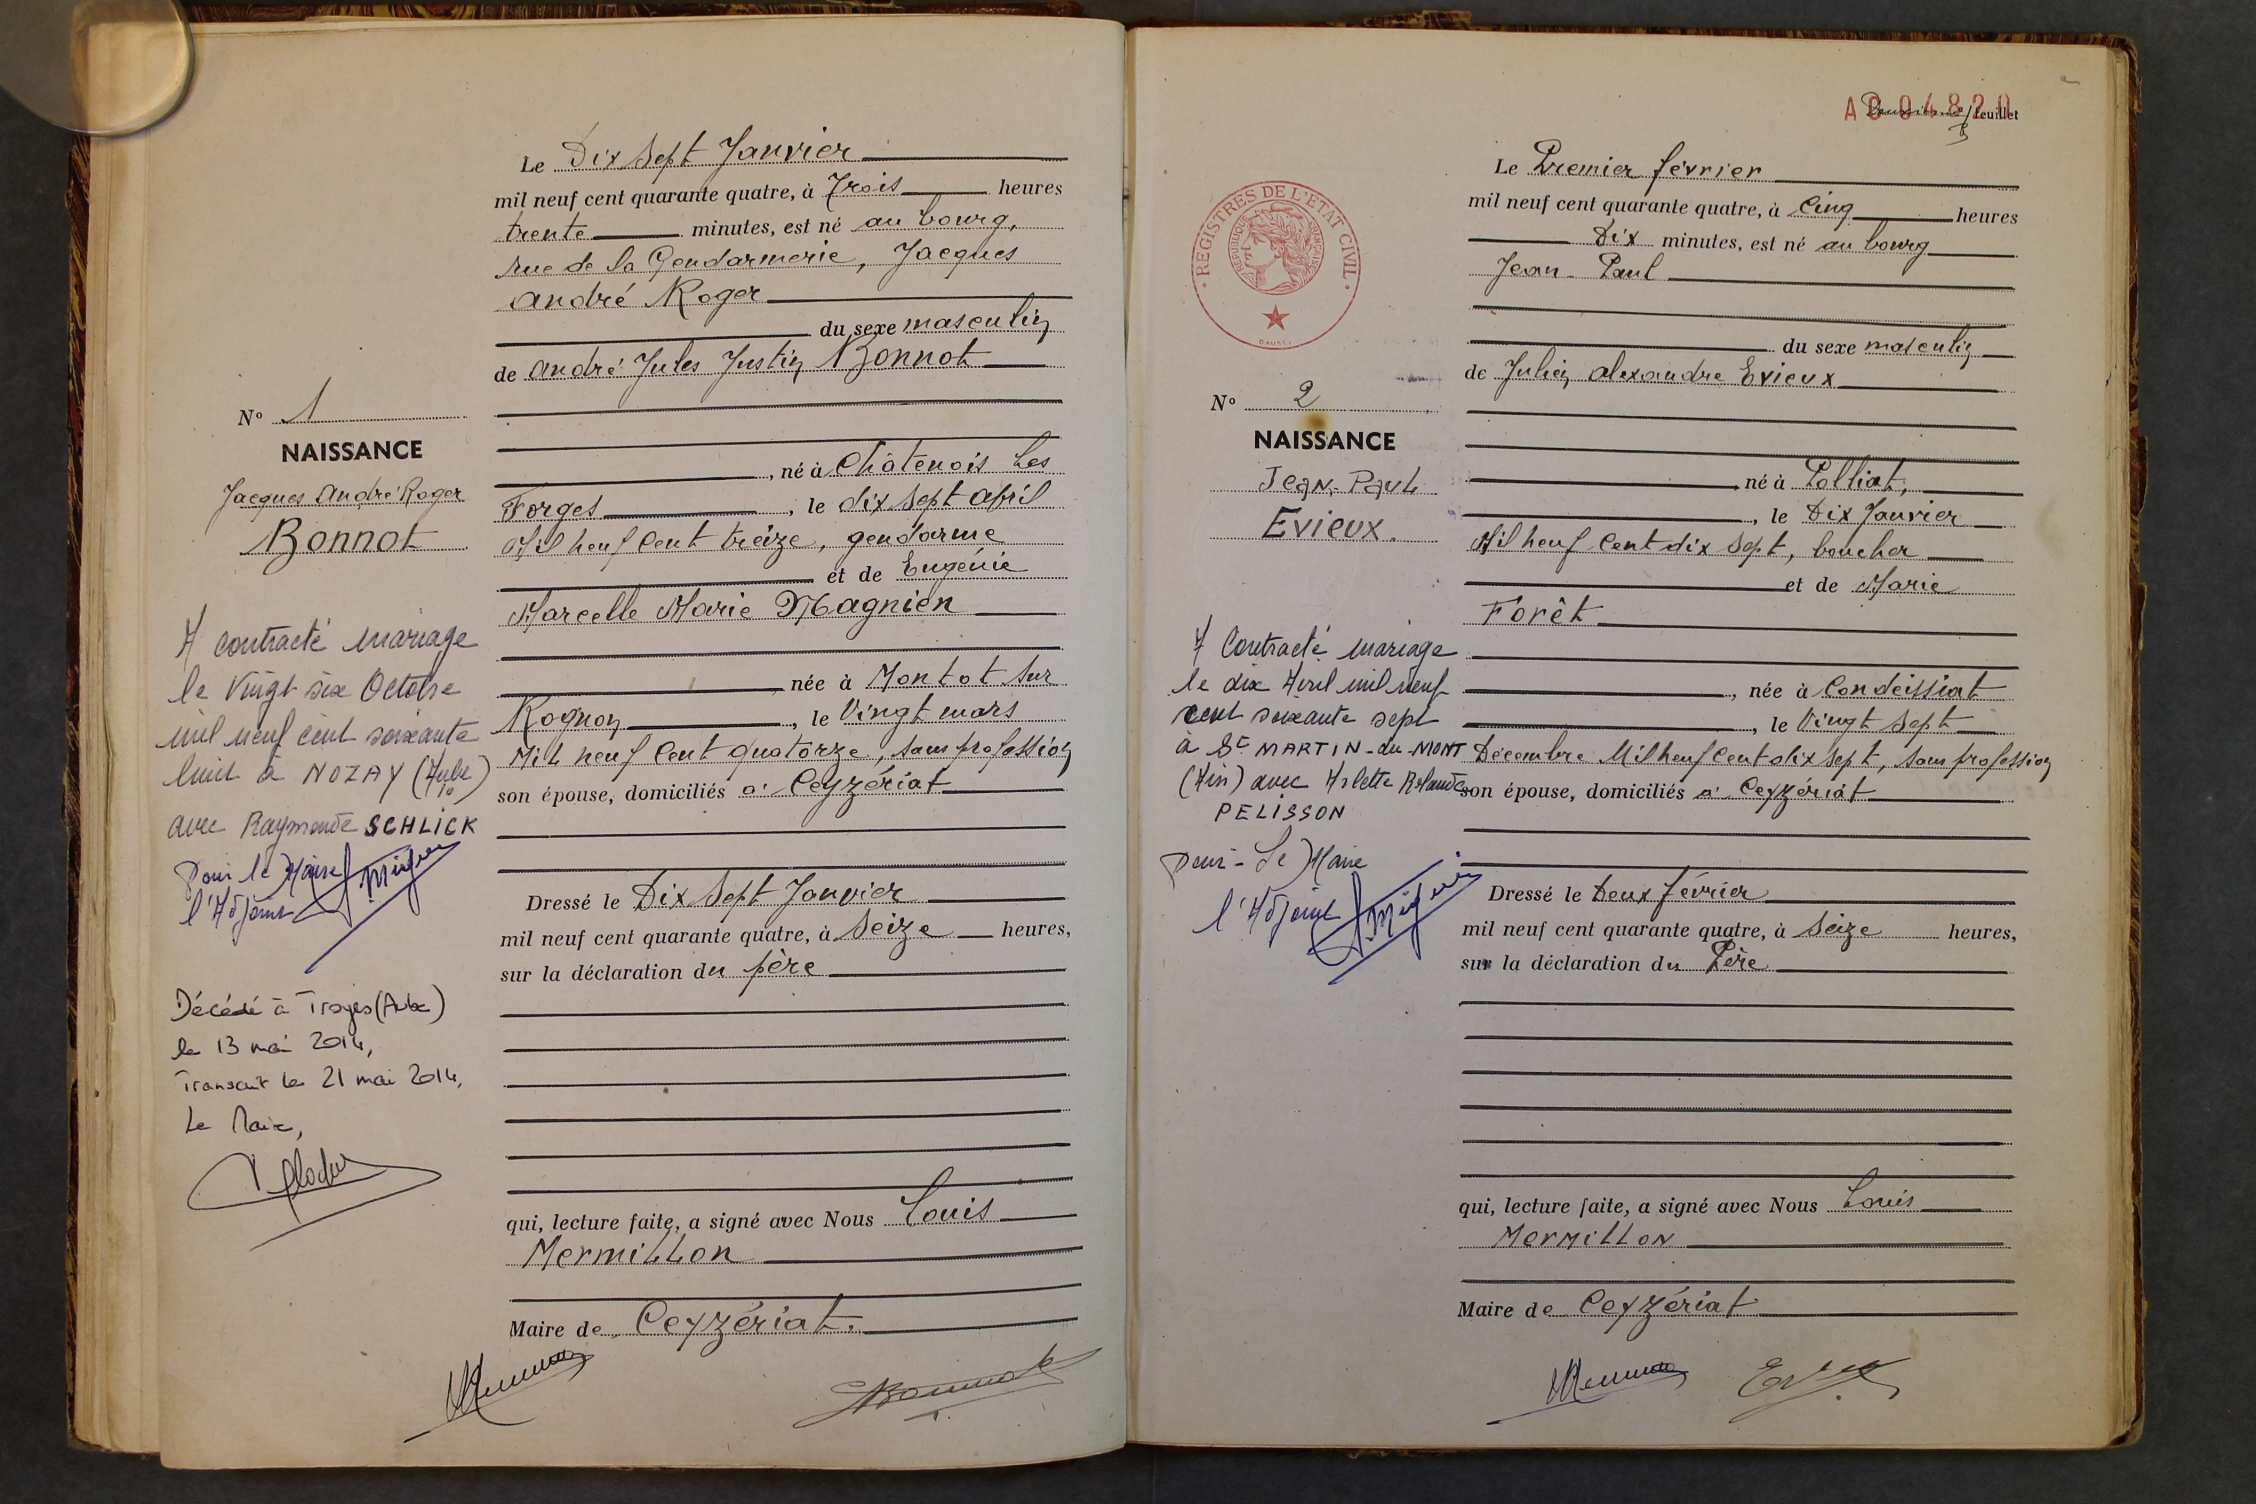 Le Dix Sept Janvier
mil neuf cent quarante quatre, à Trois heures
trente minutes, est né au bourg,
rue de la Gendarmerie, Jacques
André Roger
du sexe masculin
de André Jules Justin Bonnot
N° 1
NAISSANCE
Jacques André Roger
Bonnot
, né à Châtenois Les
Forges, le dix sept Avril
Mil neuf Cent treize, gendarme
et de Eugénie
Marcelle Marie Magnien
née à Montot Sur
Rognon, le Vingt mars
Mil neuf Cent quatorze, sans profession
son épouse, domiciliés à Ceyzériat
A contracté mariage
le Vingt six Octobre
mil neuf cent soixante
huit à NOZAY (Aube)
10
avec Raymonde SCHLICK
Pour le Maire
l'Adjoint
Dressé le Dix Sept Janvier
mil neuf cent quarante quatre, à Seize heures,
sur la déclaration du père
Décédé à Troyes (Aube)
le 13 mai 2014,
Transcrit le 21 mai 2014,
Le Maire,
qui, lecture faite, a signé avec Nous Louis
Mermillon
Maire de Ceyzériat.
Bonnot
A 004820
Deuxième feuillet
Le Premier février
mil neuf cent quarante quatre, à Cinq heures
Dix minutes, est né au bourg
Jean-Paul
du sexe masculin
de Julien Alexandre Evieux
REGISTRES DE L'ETAT CIVIL
REPUBLIQUE FRANÇAISE
N° 2
NAISSANCE
Jean-Paul
Evieux.
né à Polliat,
, le Dix Janvier
Mil neuf Cent dix Sept, boucher
et de Marie
Forêt
, née à Condeissiat
, le Vingt Sept
Décembre Mil neuf Cent dix sept, sans profession
son épouse, domiciliés à Ceyzériat
A Contracté mariage
le dix Avril mil neuf
cent soixante sept
à St MARTIN-du-MONT
(Ain) avec Arlette Rolande
PELISSON
Pour-Le Maire
l'Adjoint
Dressé le Deux février
mil neuf cent quarante quatre, à Seize heures,
sur la déclaration du Père
qui, lecture faite, a signé avec Nous Louis
Mermillon
Maire de Ceyzériat